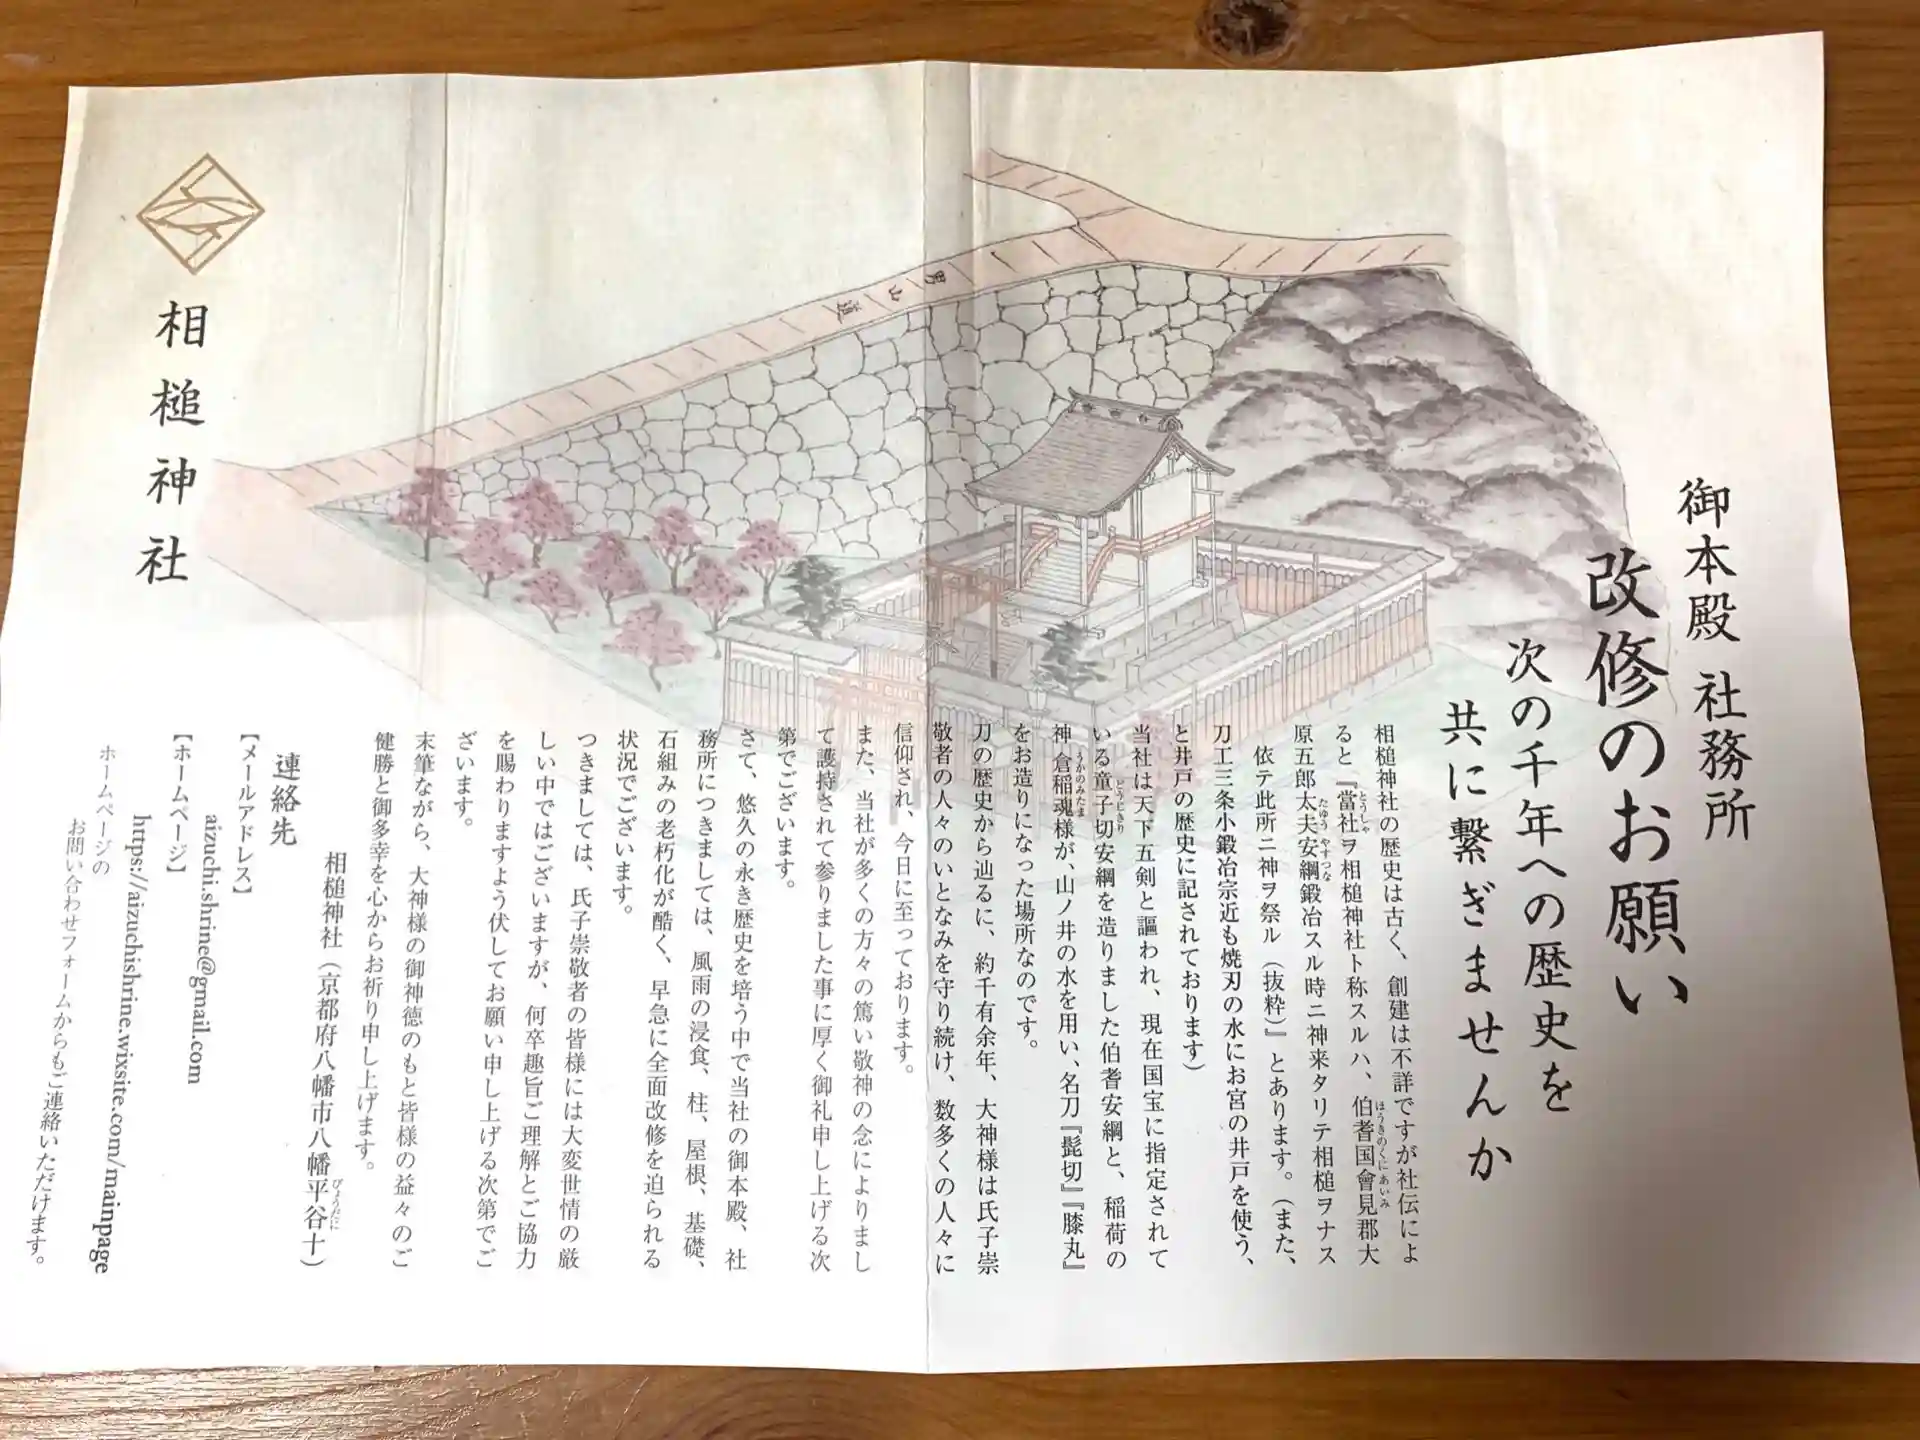 御本殿 社務所
改修のお願い
次の千年への歴史を
共に繋ぎませんか
相槌神社の歴史は古く、創建は不詳ですが社伝によ
ると『當社ヲ相槌神社ト称スルハ、伯耆国會見郡大
原五郎太夫安綱鍛冶スル時ニ神来タリテ相槌ヲナス
依テ此所ニ神ヲ祭ル(抜粋)』とあります。(また、
刀工三条小鍛冶宗近も焼刃の水にお宮の井戸を使う、
と井戸の歴史に記されております)
当社は天下五剣と謳われ、現在国宝に指定されて
いる童子切安綱を造りました伯耆安綱と、稲荷の
神倉稲魂様が、山ノ井の水を用い、名刀『髭切』『膝丸』
をお造りになった場所なのです。
刀の歴史から辿るに、約千有余年、大神様は氏子崇
敬者の人々のいとなみを守り続け、数多くの人々に
信仰され、今日に至っております。
また、当社が多くの方々の篤い敬神の念によりまし
て護持されて参りました事に厚く御礼申し上げる次
第でございます。
さて、悠久の永き歴史を培う中で当社の御本殿、社
務所につきましては、風雨の浸食、柱、屋根、基礎、
石組みの老朽化が酷く、早急に全面改修を迫られる
状況でございます。
つきましては、氏子崇敬者の皆様には大変世情の厳
しい中ではございますが、何卒趣旨ご理解とご協力
を賜わりますよう伏してお願い申し上げる次第でご
ざいます。
末筆ながら、大神様の御神徳のもと皆様の益々のご
健勝と御多幸を心からお祈り申し上げます。
相槌神社(京都府八幡市八幡平谷十)
連絡先
【メールアドレス】
aizuchi.shrine@gmail.com
【ホームページ】
https://aizuchishrine.wixsite.com/mainpage
ホームページの
お問い合わせフォームからもご連絡いただけます。
相槌神社
男山道
とうしゃ
ほうきのくにあいみ
たゆうやすつな
どうじきり
うかのみたま
びょうだに